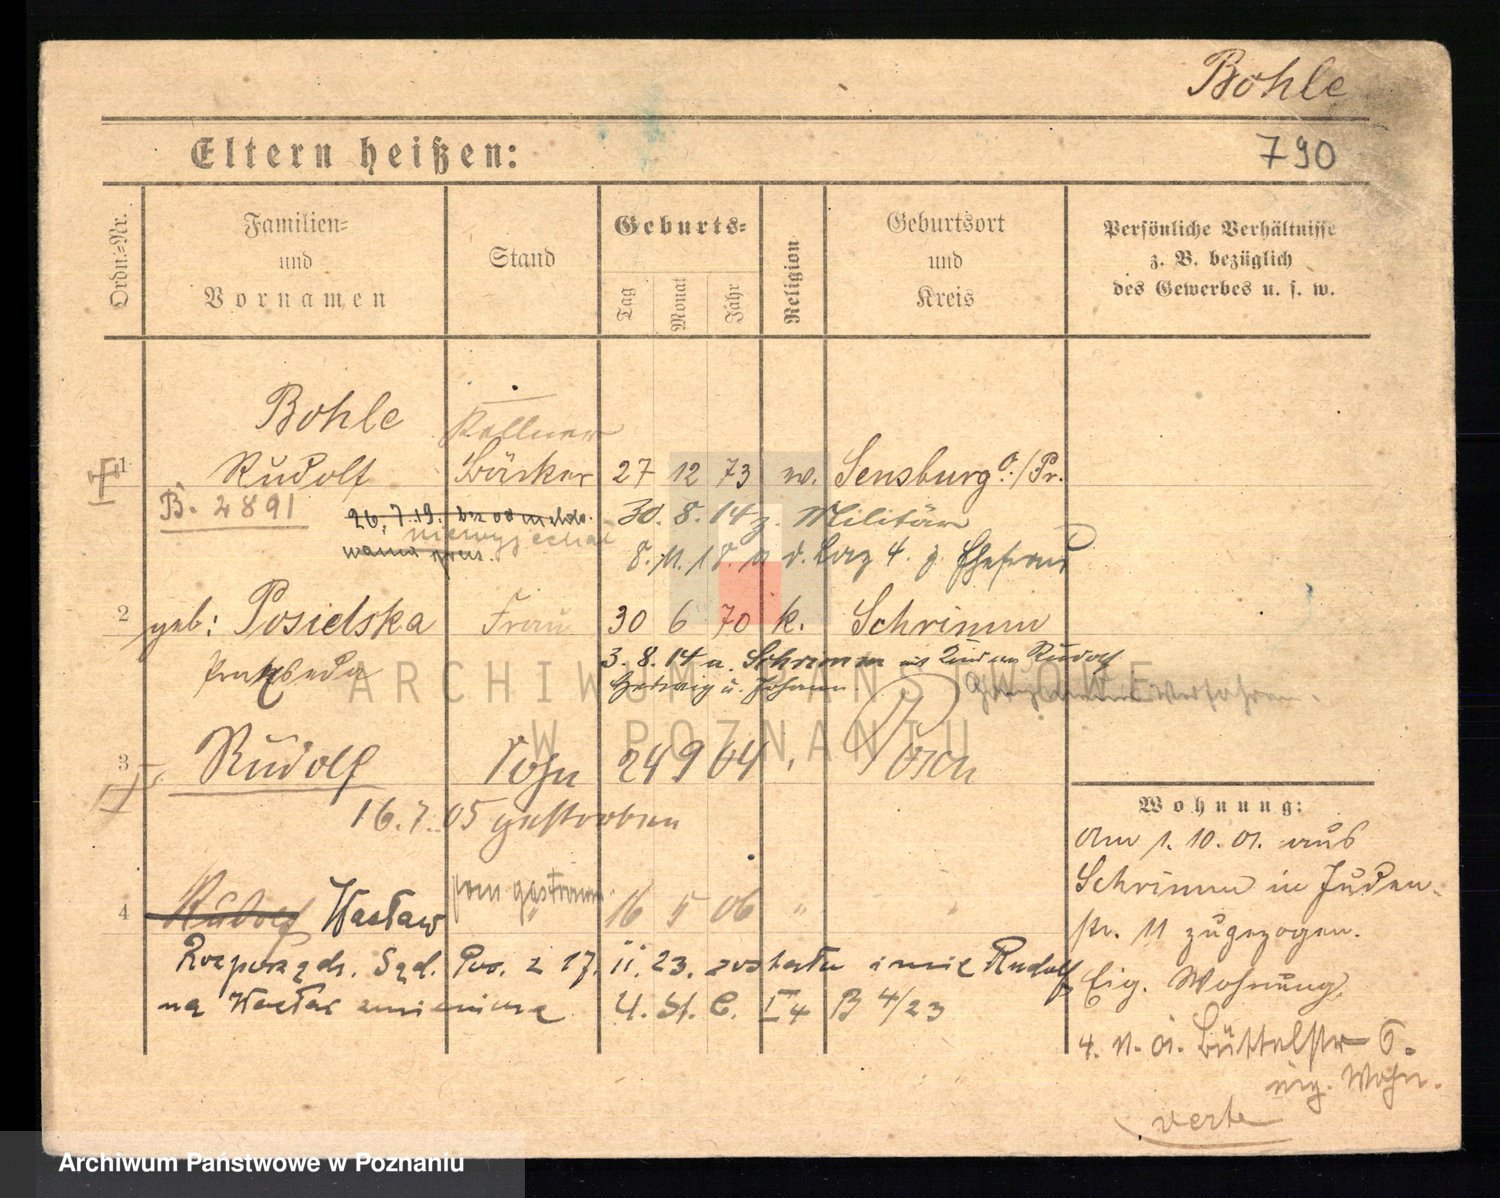 Bohle
790
Eltern heißen:
Ordn.=Nr.
Familien=
und
Vornamen
Stand
Geburts=
Tag
Monat
Jahr
Religion
Geburtsort
und
Kreis
Persönliche Verhältnisse
z. B. bezüglich
des Gewerbes u. s. w.
Bohle
Kellner
1
Rudolf
Bäcker
27 12 73
Sensburg O./Pr.
B. 2891
26.7.19.
niewyjechał
30. 8. 14 z. Militär
8. 11. 18. v. d. z. Ehefrau
2
geb: Posielska
Frau
30 6 70 k.
Schrimm
Praxeda
3. 8. 14 a. Schrimm Rudolf
Hedwig u. Johann.
verfahren.
3
Rudolf
Sohn
24 9 04
Posen
16. 7. 05 gestorben
4
Rudolf Wacław
16 5 06 "
Rozporządz. Sąd. Pos. z 17. 11. 23. zostało imię Rudolf
na Wacław zmienione U. St. C. I 4 B 4/23
Wohnung:
Am 1. 10. 01. aus
Schrimm in Juden-
str. 11 zugezogen.
Eig. Wohnung.
4. 11. 01. Büttelstr 6.
eig. Wohn.
verte
ARCHIWUM PAŃSTWOWE
W POZNANIU
Archiwum Państwowe w Poznaniu